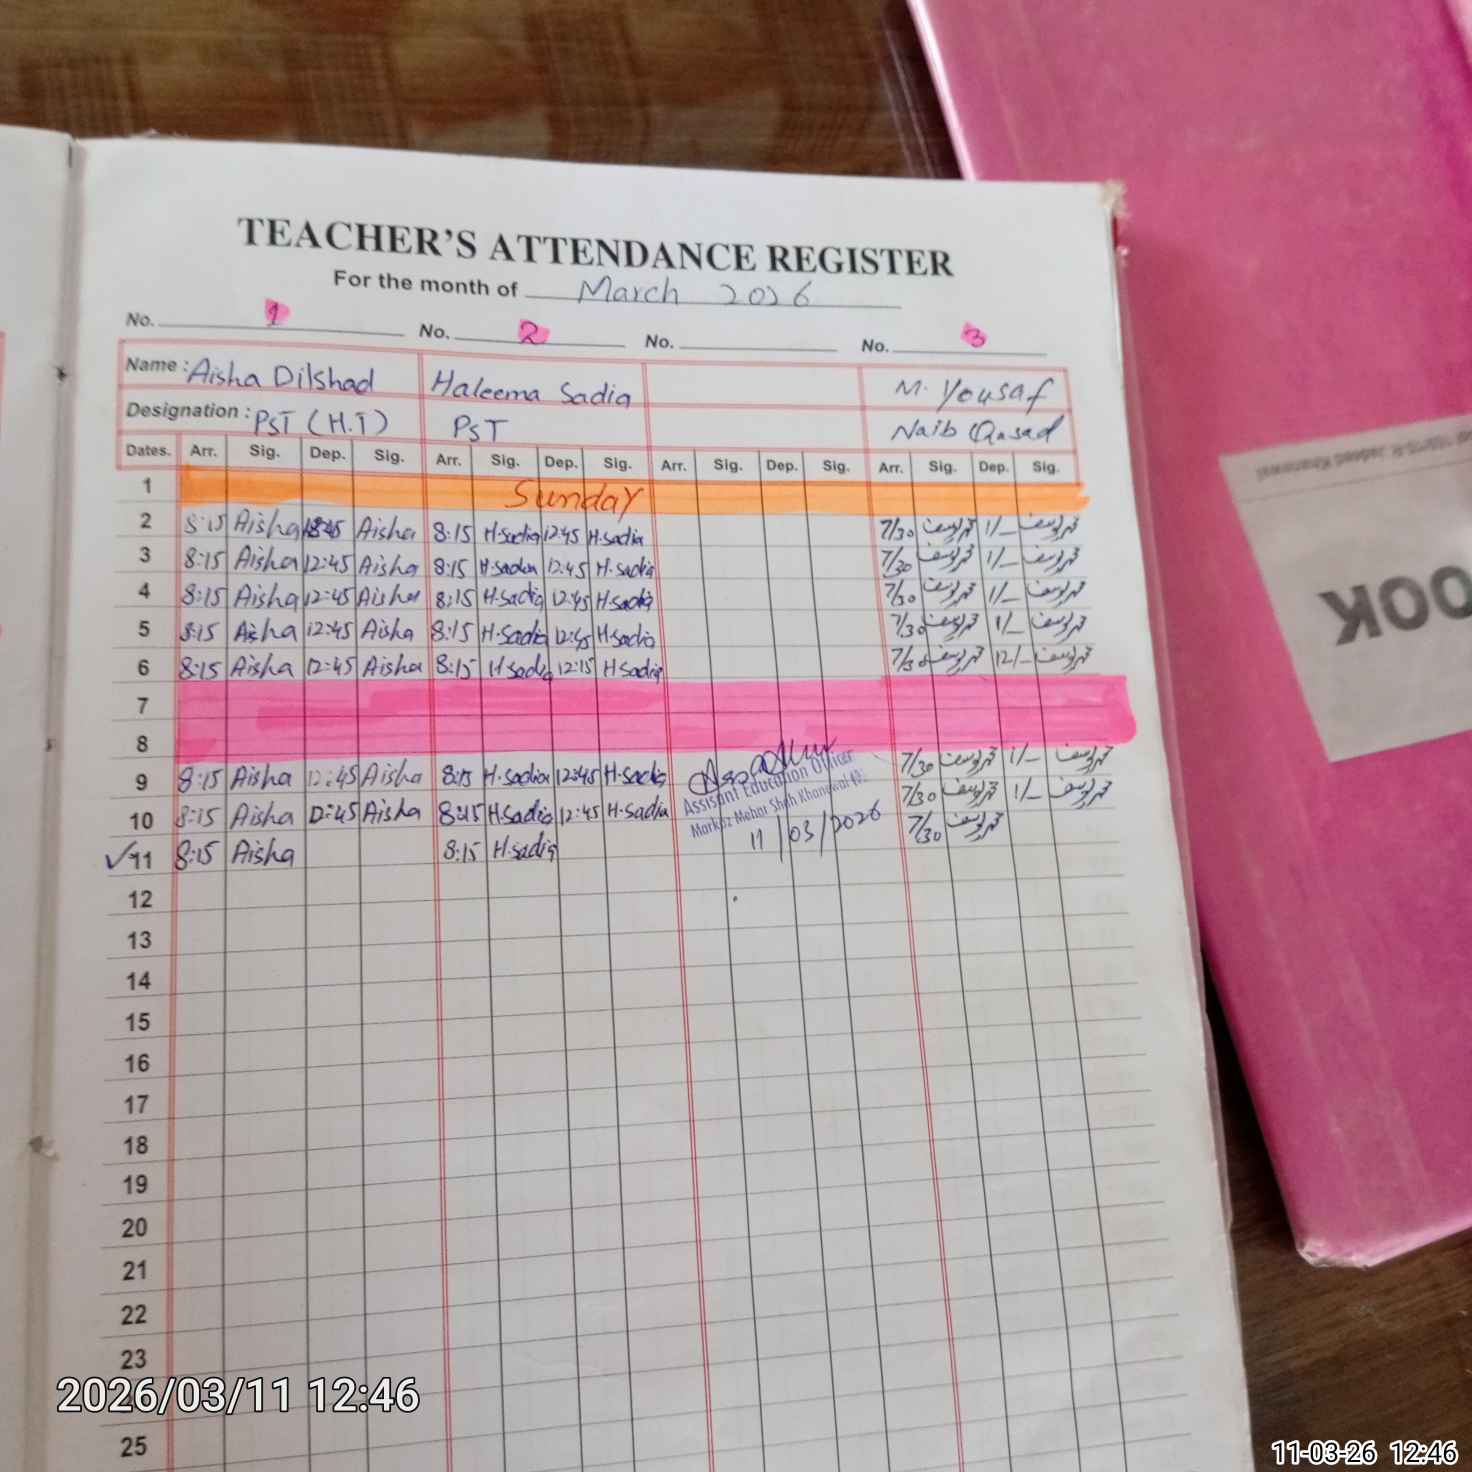 TEACHER'S ATTENDANCE REGISTER
For the month of March 2026
No. 1 No. 2 No. No. 3
Name : Aisha Dilshad Haleema Sadia M. Yousaf
Designation : PST (H.T) PST Naib Qasad
Dates. Arr. Sig. Dep. Sig. Arr. Sig. Dep. Sig. Arr. Sig. Dep. Sig. Arr. Sig. Dep. Sig.
1 Sunday
2 8:15 Aisha Aisha 8:15 H.sadia 12:45 H.sadia 7/30 محمد یوسف 1/_ محمد یوسف
3 8:15 Aisha 12:45 Aisha 8:15 H.sadia 12:45 H.sadia 7/30 محمد یوسف 1/_ محمد یوسف
4 8:15 Aisha 12:45 Aisha 8:15 H.sadia 12:45 H.sadia 7/30 محمد یوسف 1/_ محمد یوسف
5 8:15 Aisha 12:45 Aisha 8:15 H.Sadia 12:45 H.Sadia 7/30 محمد یوسف 1/_ محمد یوسف
6 8:15 Aisha 12:45 Aisha 8:15 H.Sadia 12:15 H.Sadia 7/30 محمد یوسف 12/_ محمد یوسف
7
8
9 8:15 Aisha 12:45 Aisha 8:15 H.sadia 12:45 H.sadia 7/30 محمد یوسف 1/_ محمد یوسف
Assistant Education Officer
10 8:15 Aisha 12:45 Aisha 8:15 H.Sadia 12:45 H.Sadia 7/30 محمد یوسف 1/_ محمد یوسف
Markaz Mehar Shah Khanewal
11 8:15 Aisha 8:15 H.sadia 11/03/2026 7/30 محمد یوسف
12
13
14
15
16
17
18
19
20
21
22
23
25
OOK
2026/03/11 12:46
11-03-26 12:46